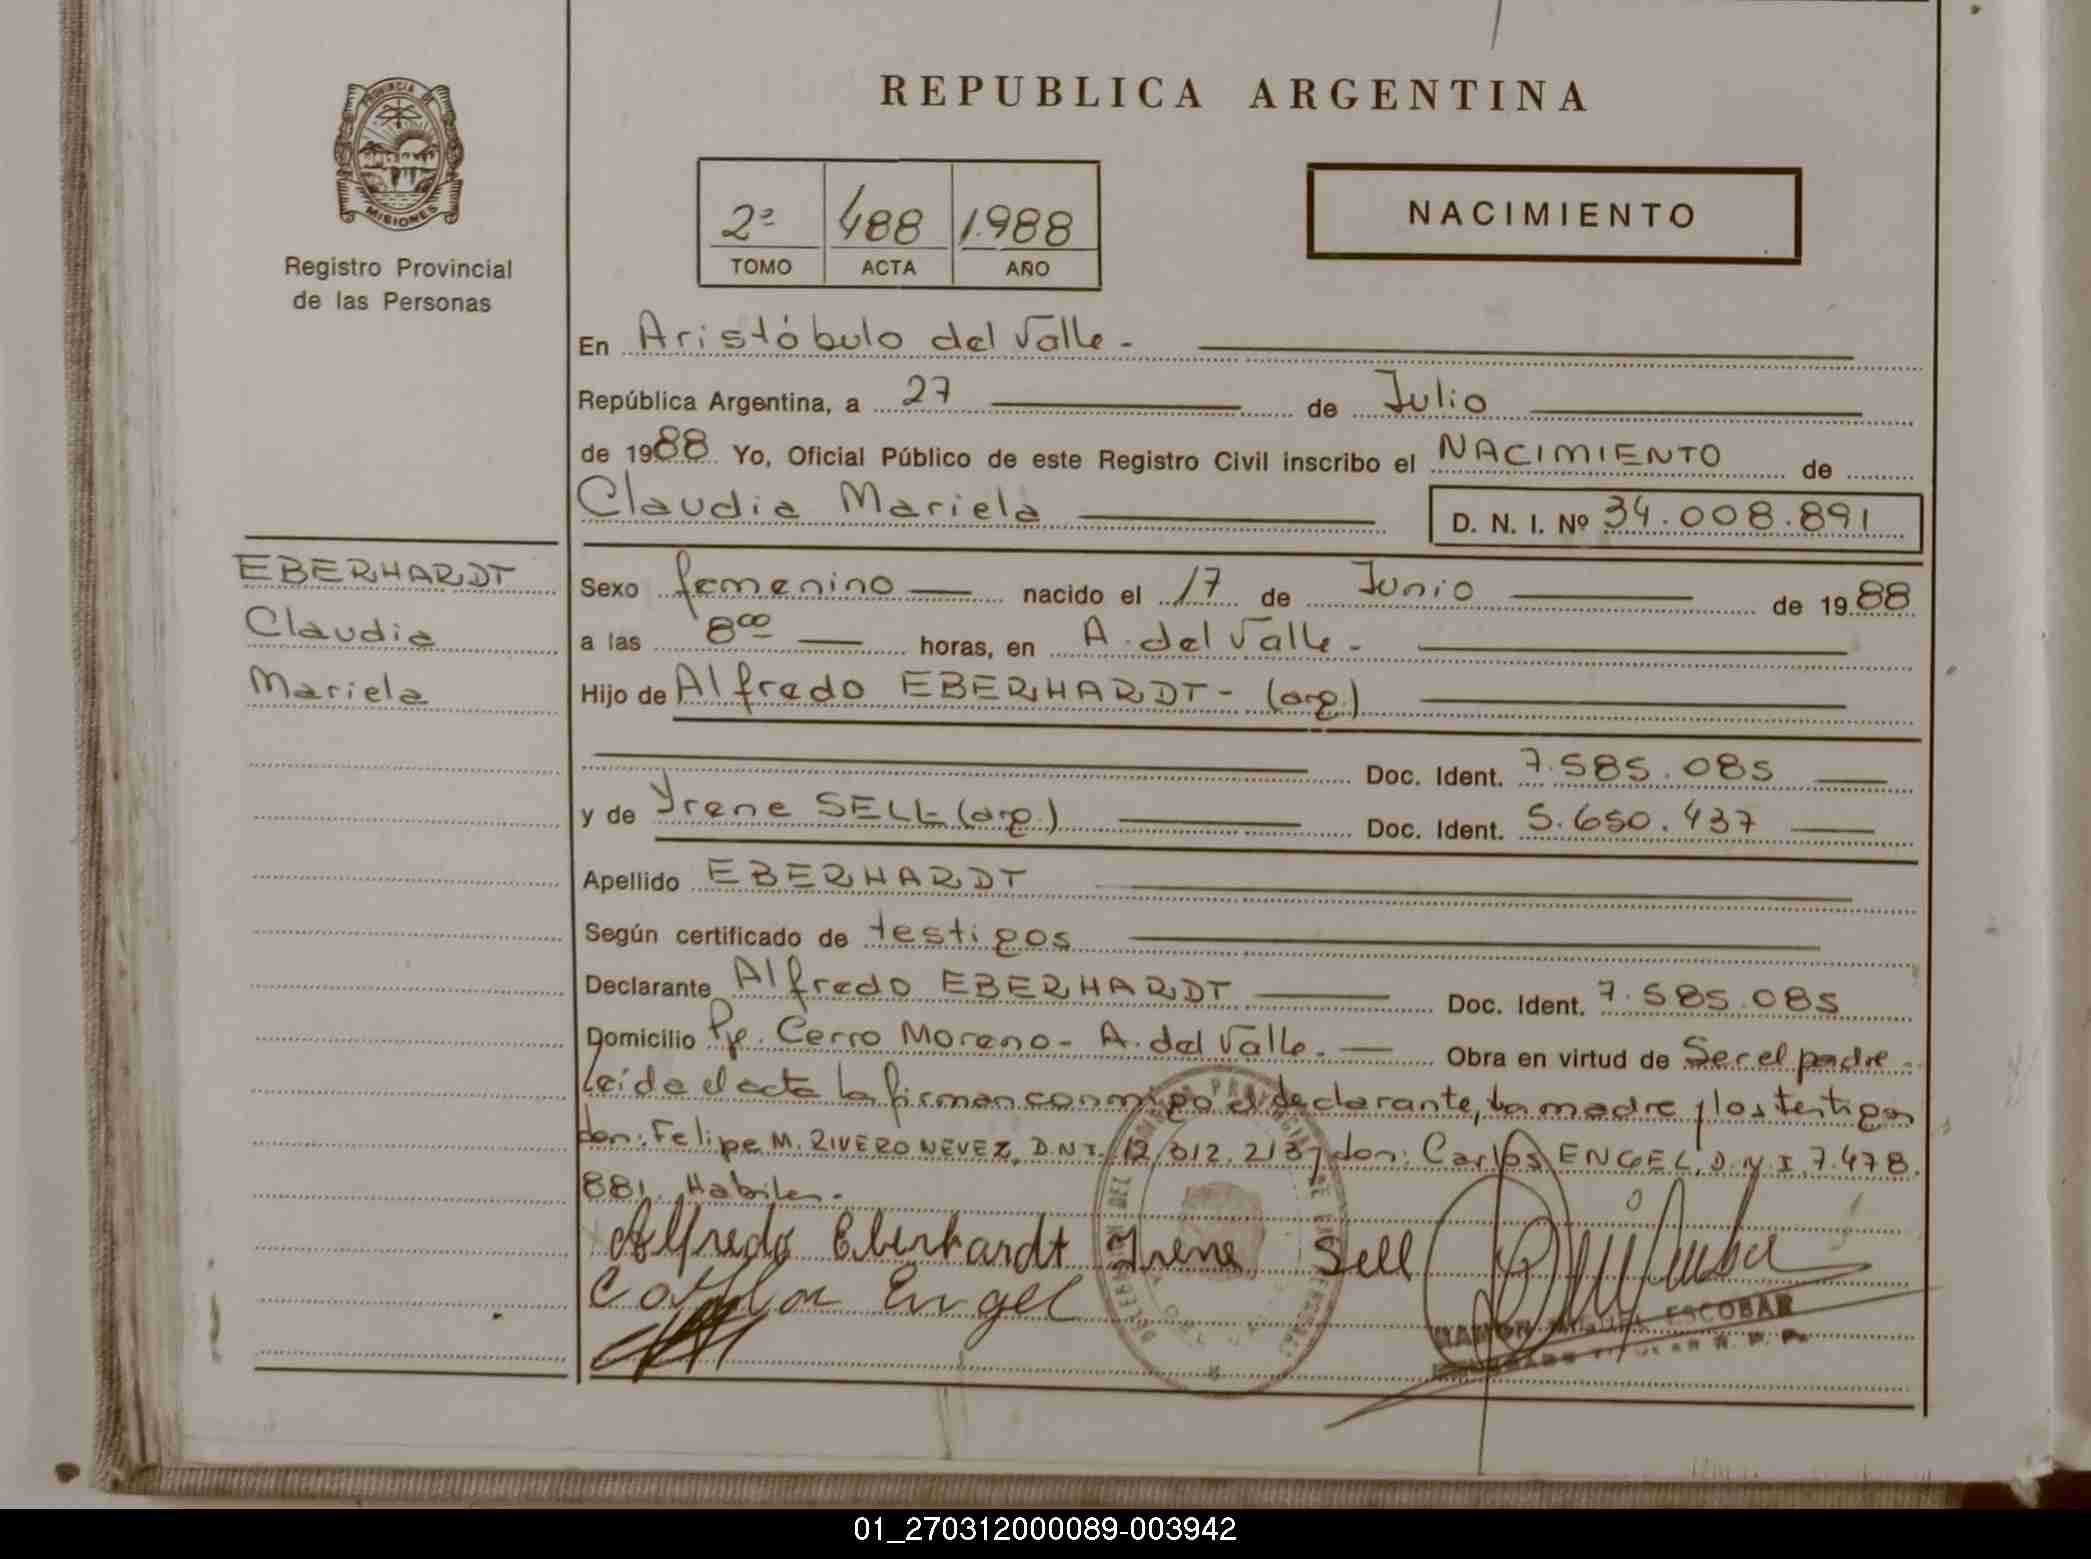 PROVINCIA DE
MISIONES
Registro Provincial
de las Personas
REPUBLICA ARGENTINA
2º 488 1.988
TOMO ACTA AÑO
NACIMIENTO
En Aristóbulo del Valle.-
República Argentina, a 27 de Julio
de 1988 Yo, Oficial Público de este Registro Civil inscribo el NACIMIENTO de
Claudia Mariela
D. N. I. Nº 34.008.891
EBERHARDT
Claudia
Mariela
Sexo femenino nacido el 17 de Junio de 1988
a las 8 00 horas, en A. del Valle.-
Hijo de Alfredo EBERHARDT- (arg.)
Doc. Ident. 7.585.085
y de Yrene SELL (arg.) Doc. Ident. 5.650.437
Apellido EBERHARDT
Según certificado de testigos
Declarante Alfredo EBERHARDT Doc. Ident. 7.585.085
Domicilio Pje. Cerro Moreno- A. del Valle.- Obra en virtud de Ser el padre.-
Leida el acta la firman conmigo el declarante, la madre y los testigos
don: Felipe M. RIVERO NEVEZ, D.N.I. 12.012.213 y don: Carlos ENGEL, D.N.I. 7.478.
881. Habiles.-
Alfredo Eberhardt Irene Sell
Engel
RAMON MIGUEL ESCOBAR
TITULAR R. P. P.
01_270312000089-003942